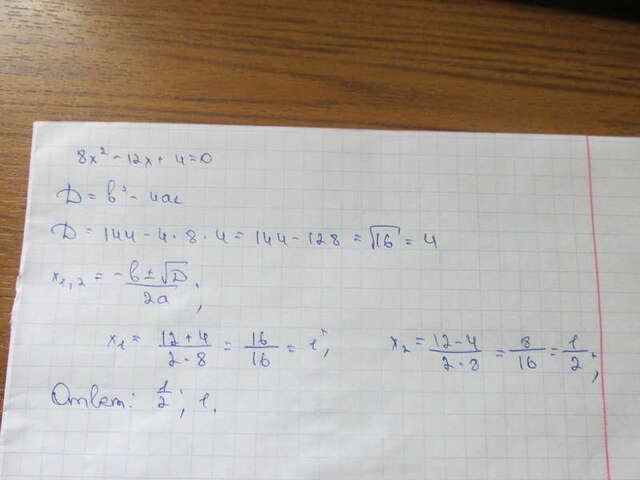 8x² - 12x + 4 = 0
D = b² - 4ac
D = 144 - 4 · 8 · 4 = 144 - 128 = √16 = 4
x₁,₂ = (-b ± √D) / 2a ;
x₁ = (12 + 4) / (2 · 8) = 16/16 = 1⁺; x₂ = (12 - 4) / (2 · 8) = 8/16 = 1/2⁺;
Ответ: 1/2; 1.